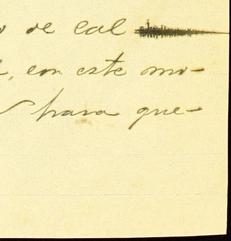 de cal
, con este mo-
para que-